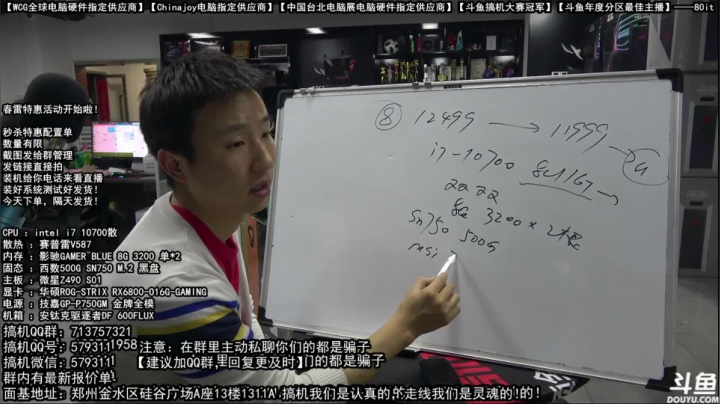 【WCG全球电脑硬件指定供应商】【Chinajoy电脑指定供应商】【中国台北电脑展电脑硬件指定供应商】【斗鱼搞机大赛冠军】【斗鱼年度分区最佳主播】——80it
春雷特惠活动开始啦!
秒杀特惠配置单
数量有限
截图发给群管理
发链接直接拍
装机给你电话来看直播
装好系统测试好发货!
今天下单，隔天发货!
CPU : intel i7 10700散
散热 : 赛普雷V587
内存 : 影驰GAMER BLUE 8G 3200 单*2
固态 : 西数500G SN750 M.2 黑盘
主板 : 微星Z490 S01
显卡 : 华硕ROG-STRIX RX6800-O16G-GAMING
电源 : 技嘉GP-P750GM 金牌全模
机箱 : 安钛克驱逐者DF 600FLUX
搞机QQ群: 713757321
搞机QQ号: 579311958 注意: 在群里主动私聊你们的都是骗子
搞机微信: 5793111 【建议加QQ群里回复更及时】们的都是骗子
群内有最新报价单!
面基地址: 郑州金水区硅谷广场A座13楼1311A!搞机我们是认真的!走线我们是灵魂的!的!
⑧ 12499 → 11999
i7-10700
8G 3200 × 2
Sn750 500G
msi
斗鱼
DOUYU.COM